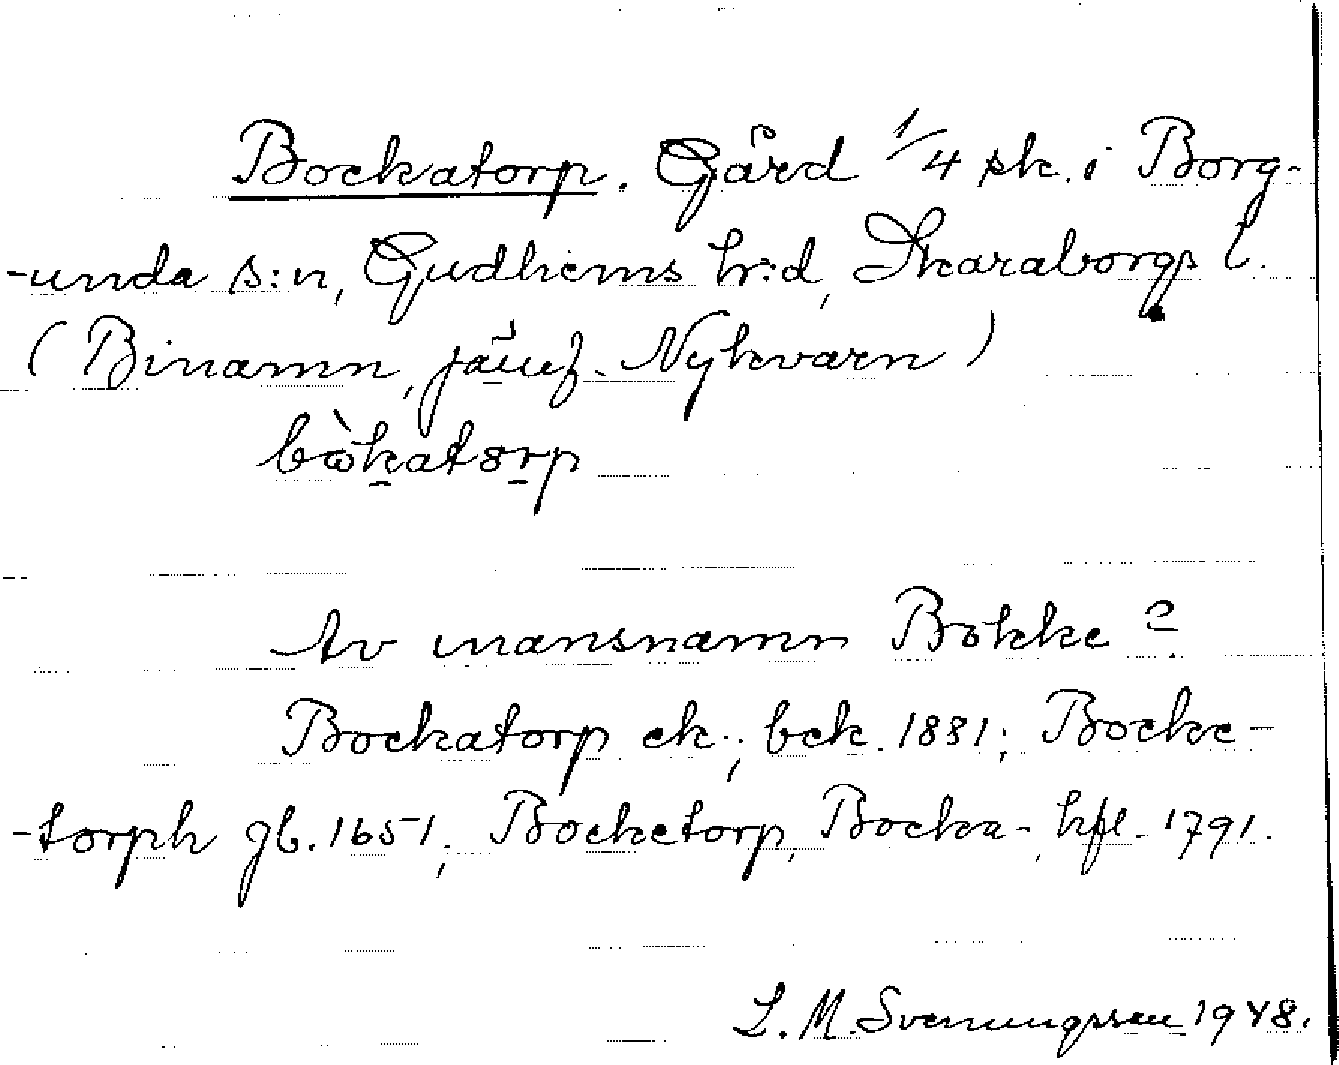 Bockatorp. Gård 1/4 sk. i Borg-
-unda s:n, Gudhems hr:d, Skaraborgs l.
(Binamn, jämf. Nykvarn)
bòkatorp
Av mansnamn Bokke?
Bockatorp ek.; bek. 1881; Bocke-
-torph gb. 1651; Bocketorp, Bocka-, hfl. 1791.
L. M. Svenungsson 1948.